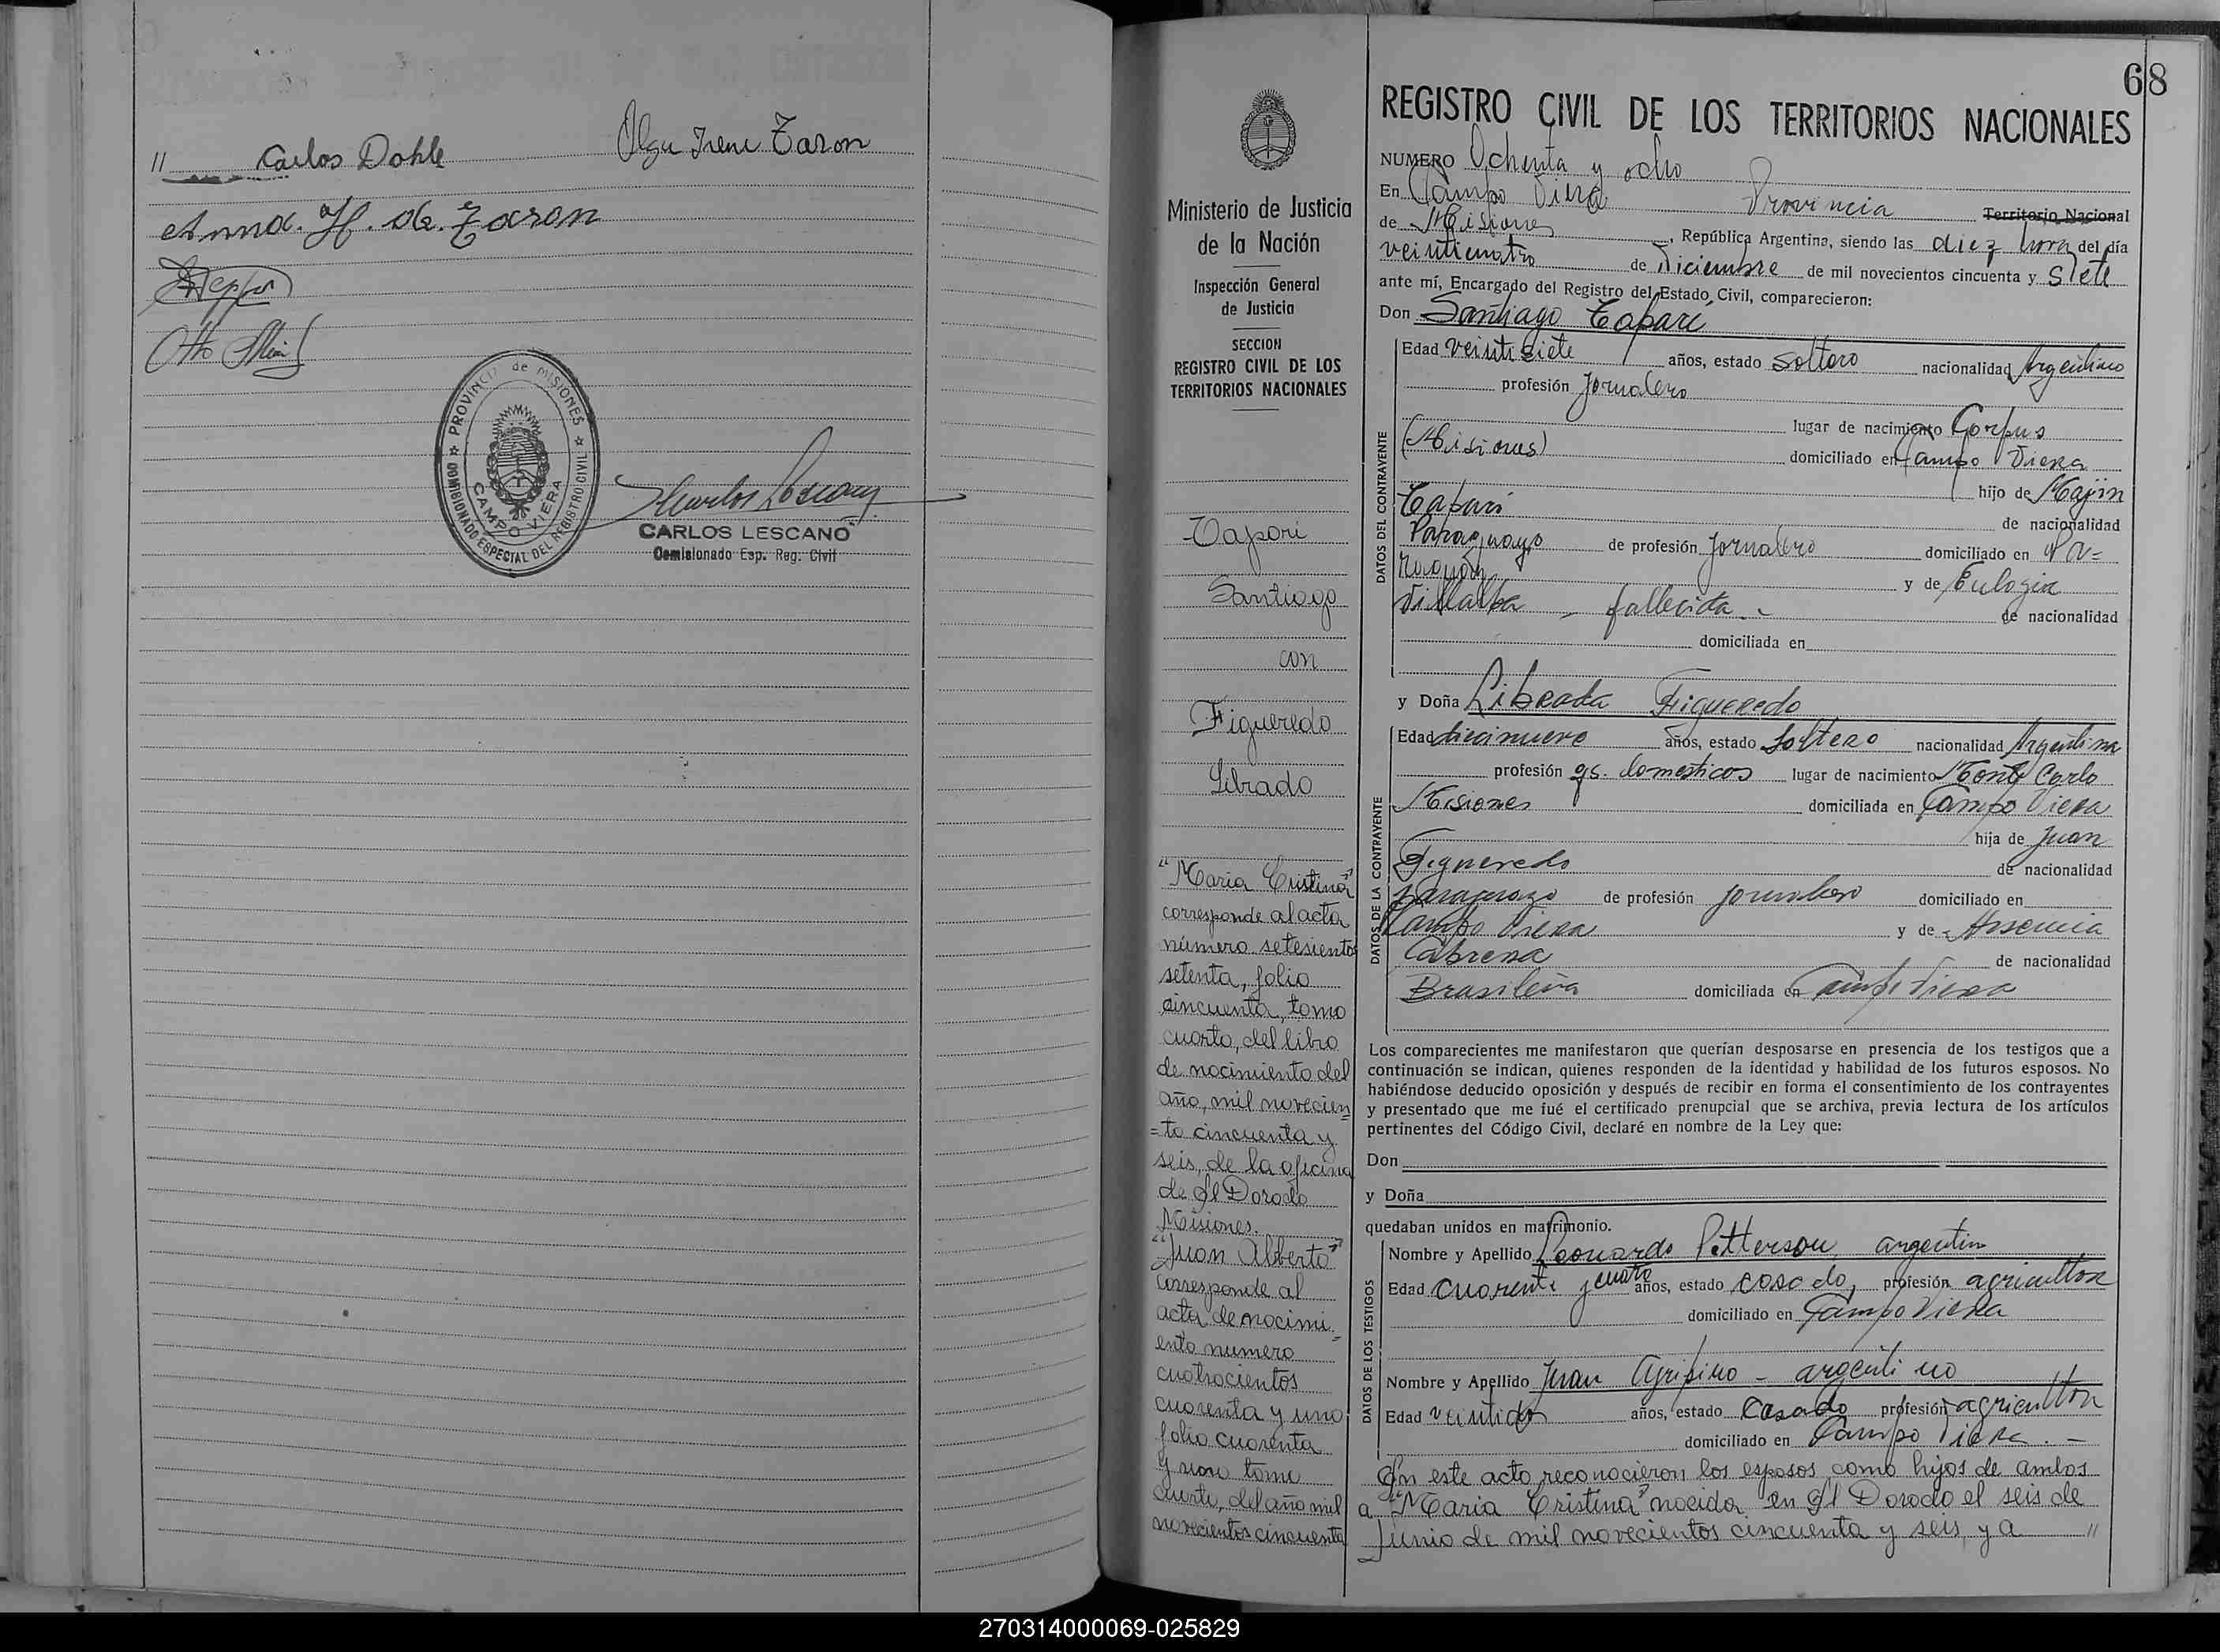 // Carlos Dohle Olga Irene Zaron
Anna. H. de. Zaron
Otto
PROVINCIA de MISIONES
COMISIONADO ESPECIAL DEL REGISTRO CIVIL
CAMPO VIERA
CARLOS LESCANO
Comisionado Esp. Reg. Civil
68
Ministerio de Justicia
de la Nación
Inspección General
de Justicia
SECCION
REGISTRO CIVIL DE LOS
TERRITORIOS NACIONALES
Tapari
Santiago
con
Figueredo
Librado
"Maria Cristina"
corresponde al acta
número setesientos
setenta, folio
cincuenta, tomo
cuarto, del libro
de nacimiento del
año, mil novecien=
=to cincuenta y
seis, de la oficina
de El Dorado
Misiones.
"Juan Alberto"
corresponde al
acta de nacimi=
ento numero
cuatrocientos
cuarenta y uno
folio cuarenta
y uno tomo
cuarto, del año mil
novecientos cincuenta
REGISTRO CIVIL DE LOS TERRITORIOS NACIONALES
NUMERO Ochenta y ocho
En Campo Viera Provincia Territorio Nacional
de Misiones, República Argentina, siendo las diez horas del día
veinticuatro de Diciembre de mil novecientos cincuenta y siete
ante mí, Encargado del Registro del Estado Civil, comparecieron:
Don Santiago Tapari
DATOS DEL CONTRAYENTE
Edad veintisiete años, estado soltero nacionalidad Argentino
profesión Jornalero
lugar de nacimiento Corpus
(Misiones) domiciliado en Campo Viera
hijo de Majin
Tapari de nacionalidad
Paraguayo de profesión Jornalero domiciliado en Pa=
raguay y de Eulogia
Villalba - fallecida - de nacionalidad
domiciliada en
y Doña Librada Figueredo
DATOS DE LA CONTRAYENTE
Edad diecinueve años, estado soltero nacionalidad Argentina
profesión qs. domesticos lugar de nacimiento Monte Carlo
Misiones domiciliada en Campo Viera
hija de Juan
Figueredo de nacionalidad
paraguayo de profesión jornalero domiciliado en
Campo Viera y de Arsenia
Cabrera de nacionalidad
Brasileña domiciliada en Campo Viera
Los comparecientes me manifestaron que querían desposarse en presencia de los testigos que a
continuación se indican, quienes responden de la identidad y habilidad de los futuros esposos. No
habiéndose deducido oposición y después de recibir en forma el consentimiento de los contrayentes
y presentado que me fué el certificado prenupcial que se archiva, previa lectura de los artículos
pertinentes del Código Civil, declaré en nombre de la Ley que:
Don
y Doña
quedaban unidos en matrimonio.
DATOS DE LOS TESTIGOS
Nombre y Apellido Leonardo Petterson, argentin
Edad cuarenta y cuatro años, estado casado, profesión agricultor
domiciliado en Campo Viera
Nombre y Apellido Juan Agripino - argentino
Edad veintidos años, estado Casado profesión agricultor
domiciliado en Campo Viera . -
En este acto reconocieron los esposos como hijos de ambos
a "Maria Cristina" nacida en El Dorado el seis de
Junio de mil novecientos cincuenta y seis, y a //
270314000069-025829